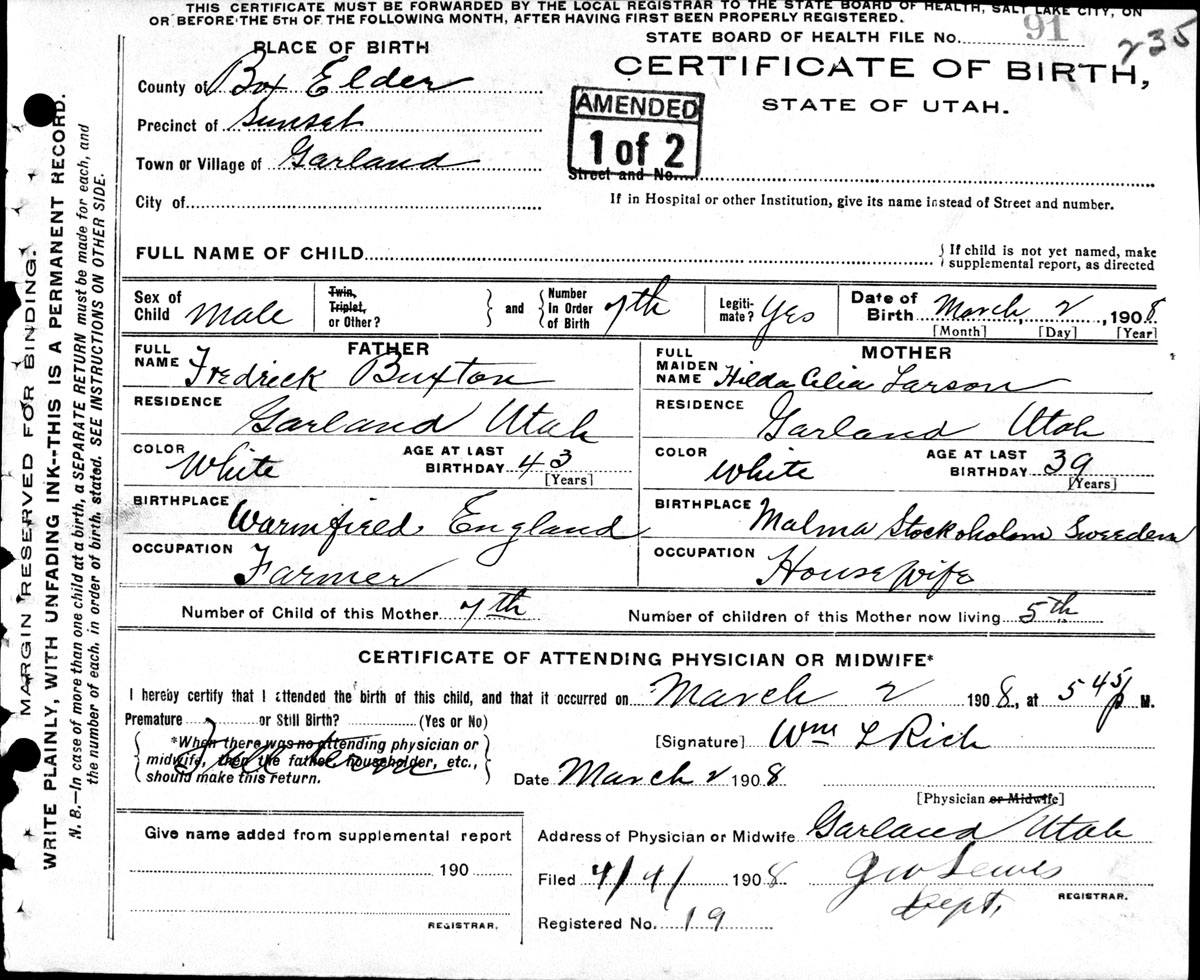 THIS CERTIFICATE MUST BE FORWARDED BY THE LOCAL REGISTRAR TO THE STATE BOARD OF HEALTH, SALT LAKE CITY, ON
OR BEFORE THE 5TH OF THE FOLLOWING MONTH, AFTER HAVING FIRST BEEN PROPERLY REGISTERED.
STATE BOARD OF HEALTH FILE No. 91
235
PLACE OF BIRTH
CERTIFICATE OF BIRTH,
STATE OF UTAH.
County of Box Elder
AMENDED
1 of 2
Precinct of Sunset
Town or Village of Garland
Street and No.
City of
If in Hospital or other Institution, give its name instead of Street and number.
FULL NAME OF CHILD
{ If child is not yet named, make supplemental report, as directed
Sex of Child Male
Twin, Triplet, or Other? } and { Number In Order of Birth 7th
Legiti-mate? Yes
Date of Birth March 2, 1908
[Month] [Day] [Year]
FATHER
FULL NAME Fredrick Buxton
RESIDENCE Garland Utah
COLOR White AGE AT LAST BIRTHDAY 43
[Years]
BIRTHPLACE Warmfield England
OCCUPATION Farmer
MOTHER
FULL MAIDEN NAME Hilda Celia Larson
RESIDENCE Garland Utah
COLOR White AGE AT LAST BIRTHDAY 39
[Years]
BIRTHPLACE Malma Stockoholom Sweeden
OCCUPATION House wife
Number of Child of this Mother 7th Number of children of this Mother now living 5th
CERTIFICATE OF ATTENDING PHYSICIAN OR MIDWIFE*
I hereby certify that I attended the birth of this child, and that it occurred on March 2 1908, at 5 45 p M.
Premature or Still Birth? (Yes or No)
Full Term
{ *When there was no attending physician or midwife, then the father, householder, etc., should make this return. }
[Signature] Wm L Rich
Date March 2 1908
[Physician or Midwife]
Give name added from supplemental report
190
REGISTRAR.
Address of Physician or Midwife Garland Utah
Filed 4/4/ 1908 Geo Lewis
REGISTRAR.
Dept.
Registered No. 19
MARGIN RESERVED FOR BINDING.
WRITE PLAINLY, WITH UNFADING INK--THIS IS A PERMANENT RECORD.
N. B.—In case of more than one child at a birth, a SEPARATE RETURN must be made for each, and
the number of each, in order of birth, stated. SEE INSTRUCTIONS ON OTHER SIDE.